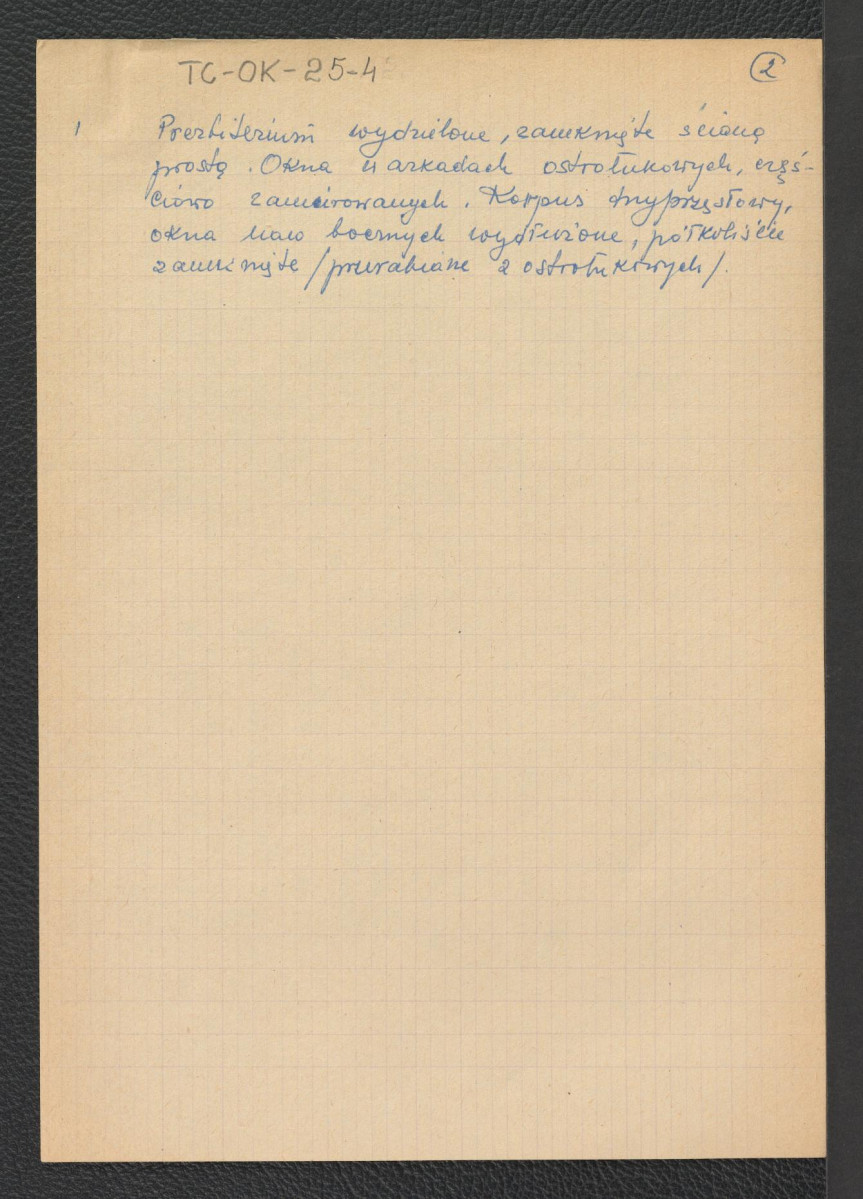 TC-OK-25-4
2
1 Prezbiterium wydzielone, zamknięte ścianą
prostą. Okna w arkadach ostrołukowych, częś-
ciowo zamurowanych. Korpus trzyprzęsłowy,
okna naw bocznych wydłużone, półkoliście
zamknięte /przerabiane z ostrołukowych/.